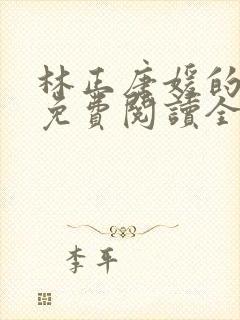 林正唐媛的
免費閱讀全
李平